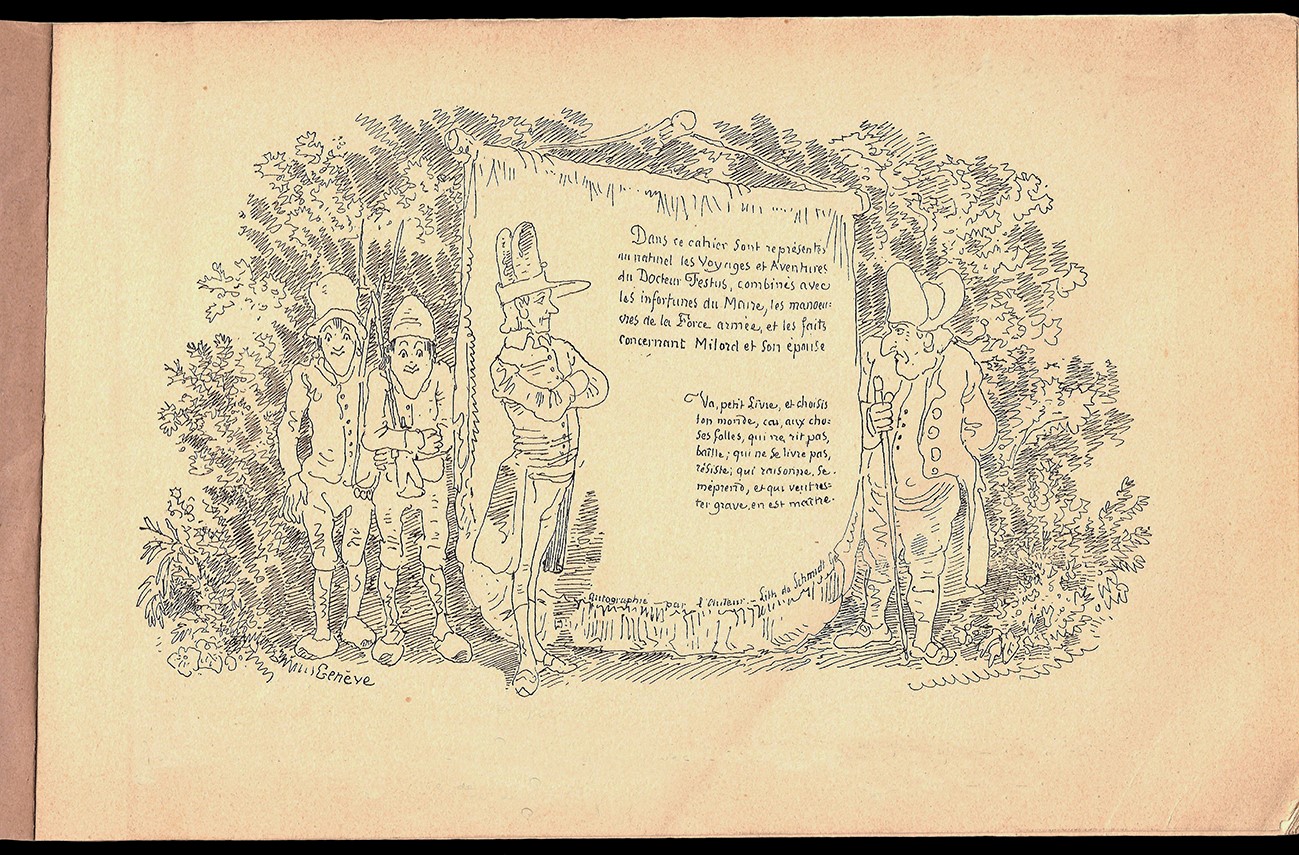 Dans ce cahier sont représentés
au naturel les Voyages et Aventures
du Docteur Festus, combinés avec
les infortunes du Maire, les manoeu=
vres de la Force armée, et les faits
concernant Milord et son épouse
Va, petit Livre, et choisis
ton monde, car, aux cho=
ses folles, qui ne rit pas,
baille; qui ne se livre pas,
résiste; qui raisonne, se
méprend, et qui veut res=
ter grave, en est maître.
Autographié par l'Auteur - Lith de Schmidt
Genève